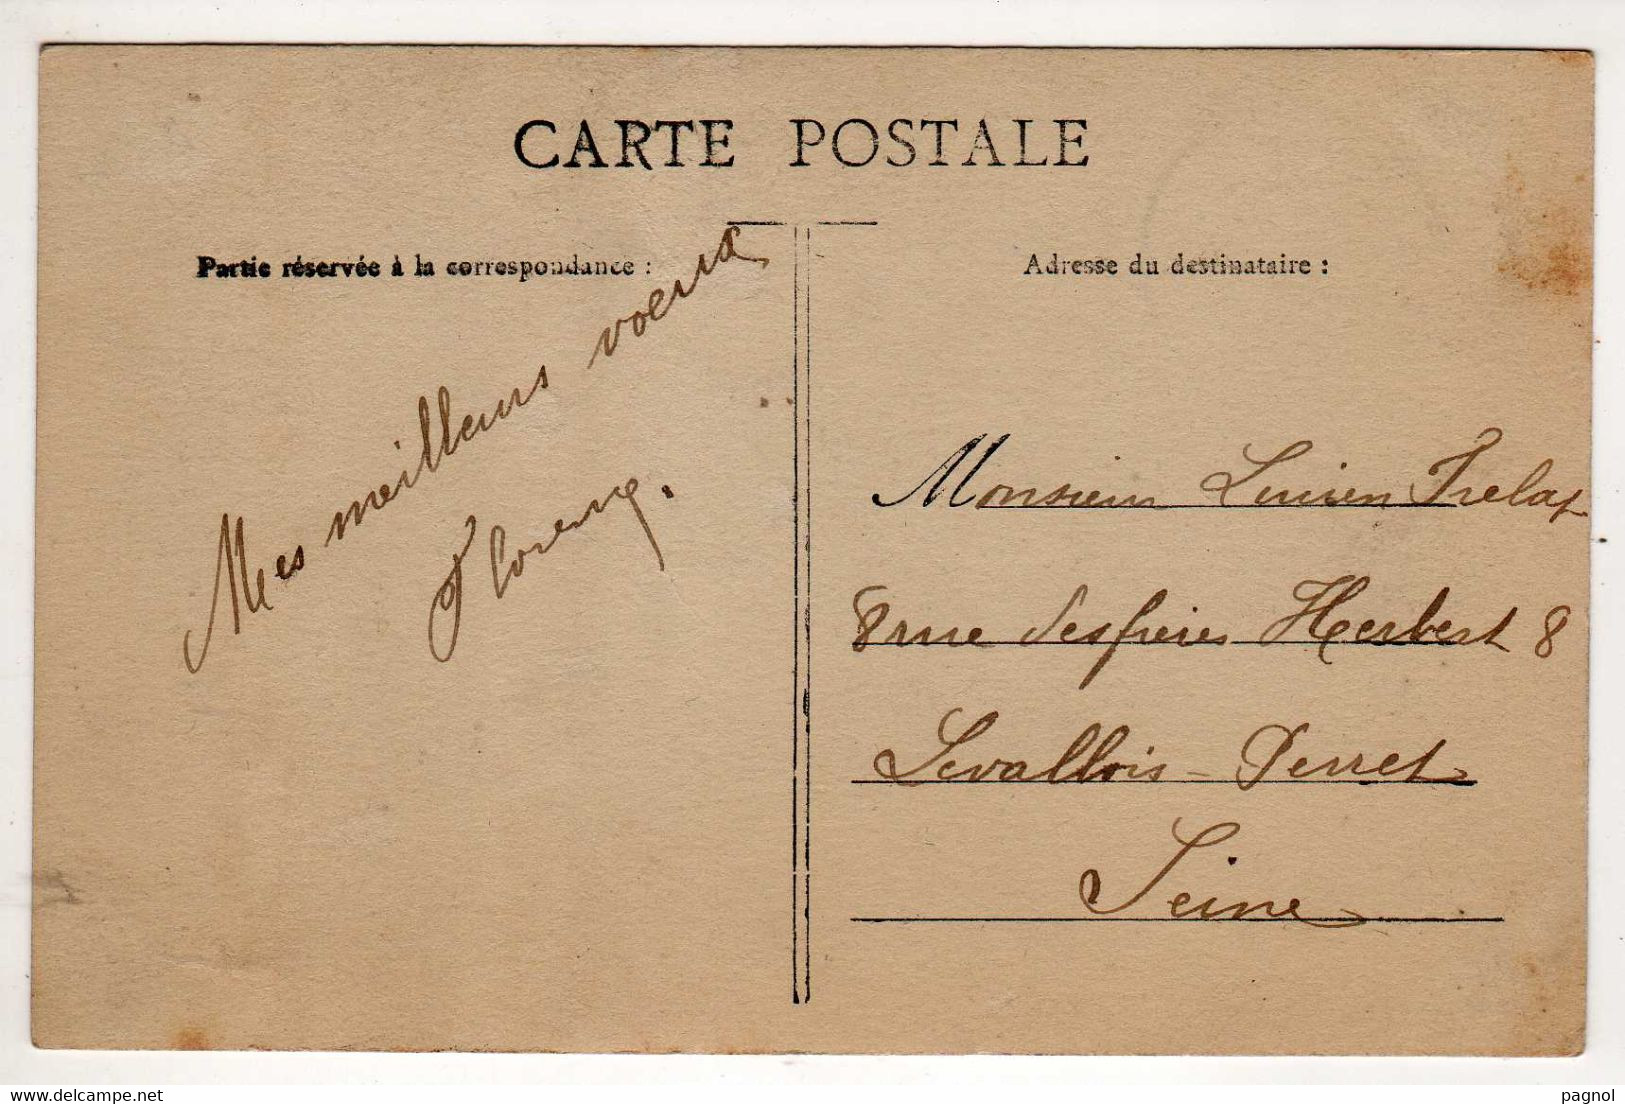 CARTE POSTALE
Partie réservée à la correspondance :
Adresse du destinataire :
Mes meilleurs voeux
Monsieur Lucien Trelat
8 rue des frères Herbert 8
Levallois-Perret
Seine
pagnol
delcampe.net